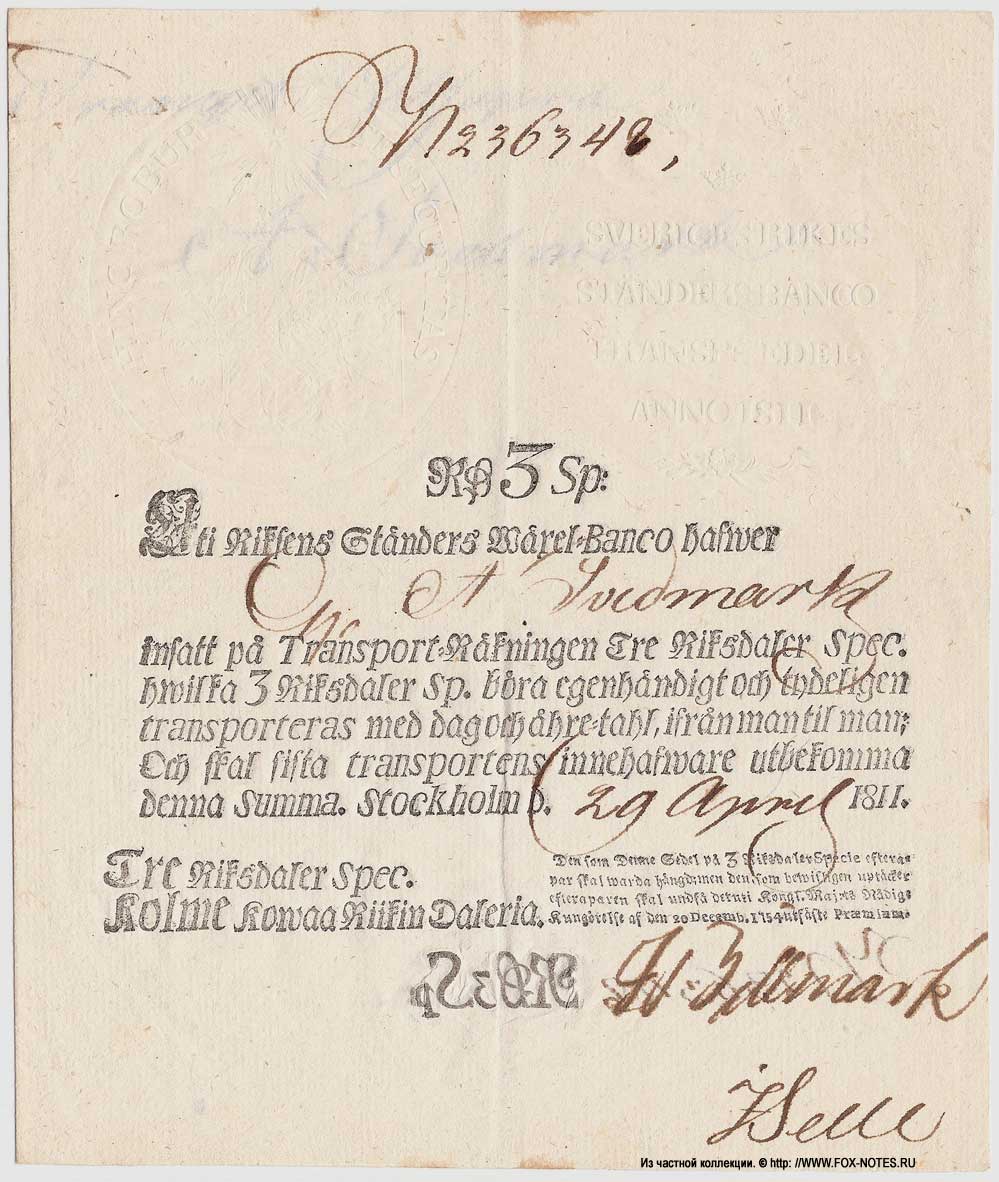 N 236348,
HINC ROBUR
SVERIGES RIKES
STÄNDERS BANCO
TRANSP. SEDEL
ANNO 1811
RD 3 Sp:
Uti Riksens Ständers Wäxel-Banco hafwer
A
insatt på Transport-Räkningen Tre Riksdaler Spec.
hwilka 3 Riksdaler Sp. böra egenhändigt och tydeligen
transporteras med dag och åhre-tahl, ifrån man til man;
Och skal sista transportens innehafware utbekomma
denna Summa. Stockholm d. 29 April 1811.
Tre Riksdaler Spec.
Kolme Kowaa Riikin Daleria.
Den som Denne Sedel på 3 Riksdaler Specie efterap-
par skal warda hängd; men den, som bewisligen uptäcker
efteraparen skal undfå det uti Kongl. Maj:ts Nådiga
Kungörelse af den 20 Decemb. 1754 utfäste Præmium.
RD 3 Sp
Из частной коллекции. © http: //WWW.FOX-NOTES.RU